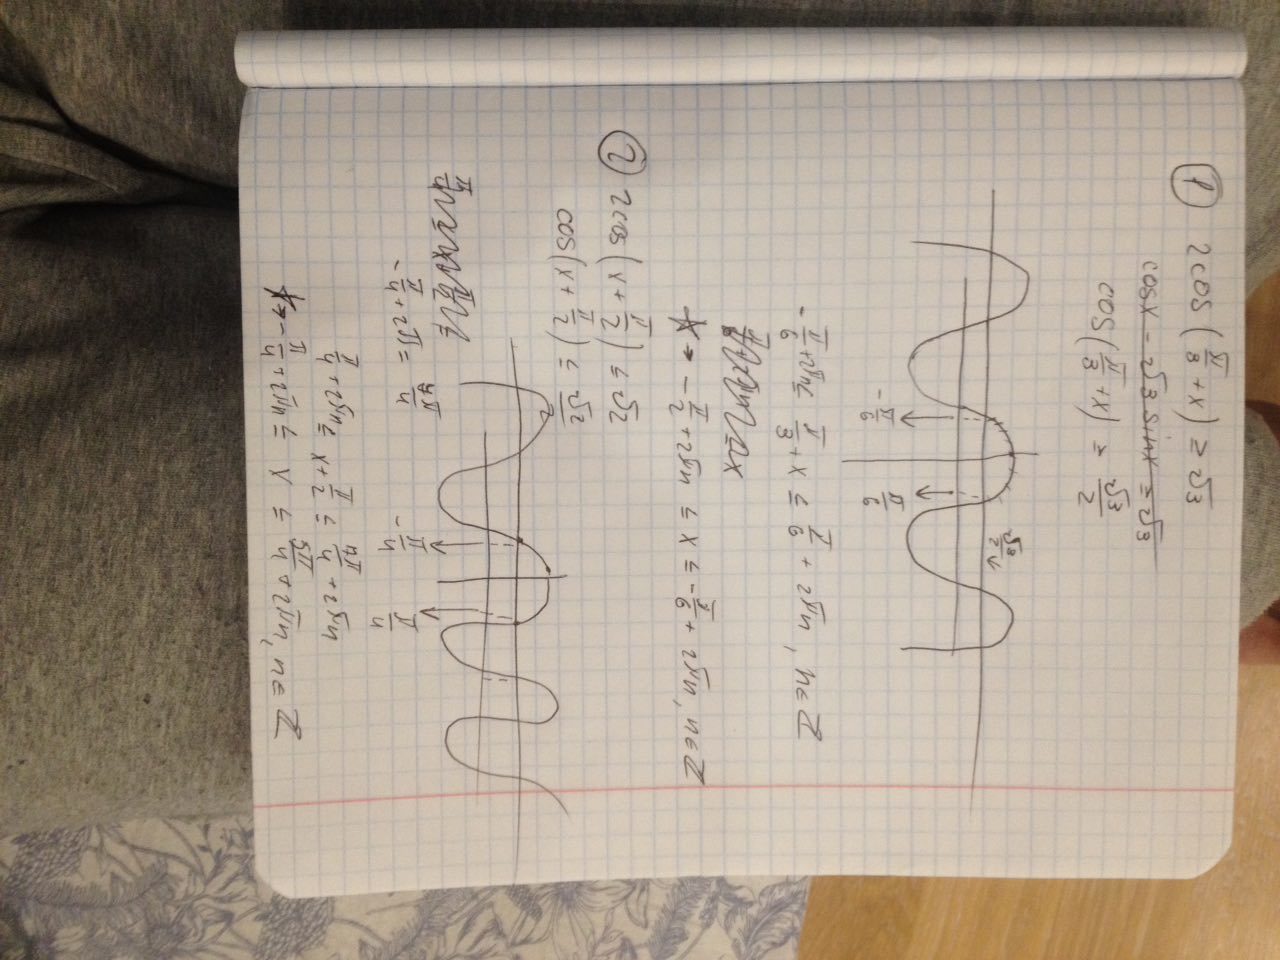 ① 2cos(π/3 + x) ≥ √3
cosx - √3 sinx ≥ √3
cos(π/3 + x) ≥ √3/2
√3/2
-π/6 π/6
-π/6 + 2πn ≤ π/3 + x ≤ π/6 + 2πn, n ∈ Z
-π/2 + 2πn ≤ x ≤ -π/6 + 2πn, n ∈ Z
② 2cos(x + π/2) ≤ √2
cos(x + π/2) ≤ √2/2
-π/4 π/4
-π/4 + 2π =
π/4 + 2πn ≤ x + π/2 ≤ 7π/4 + 2πn
-π/4 + 2πn ≤ x ≤ 5π/4 + 2πn, n ∈ Z